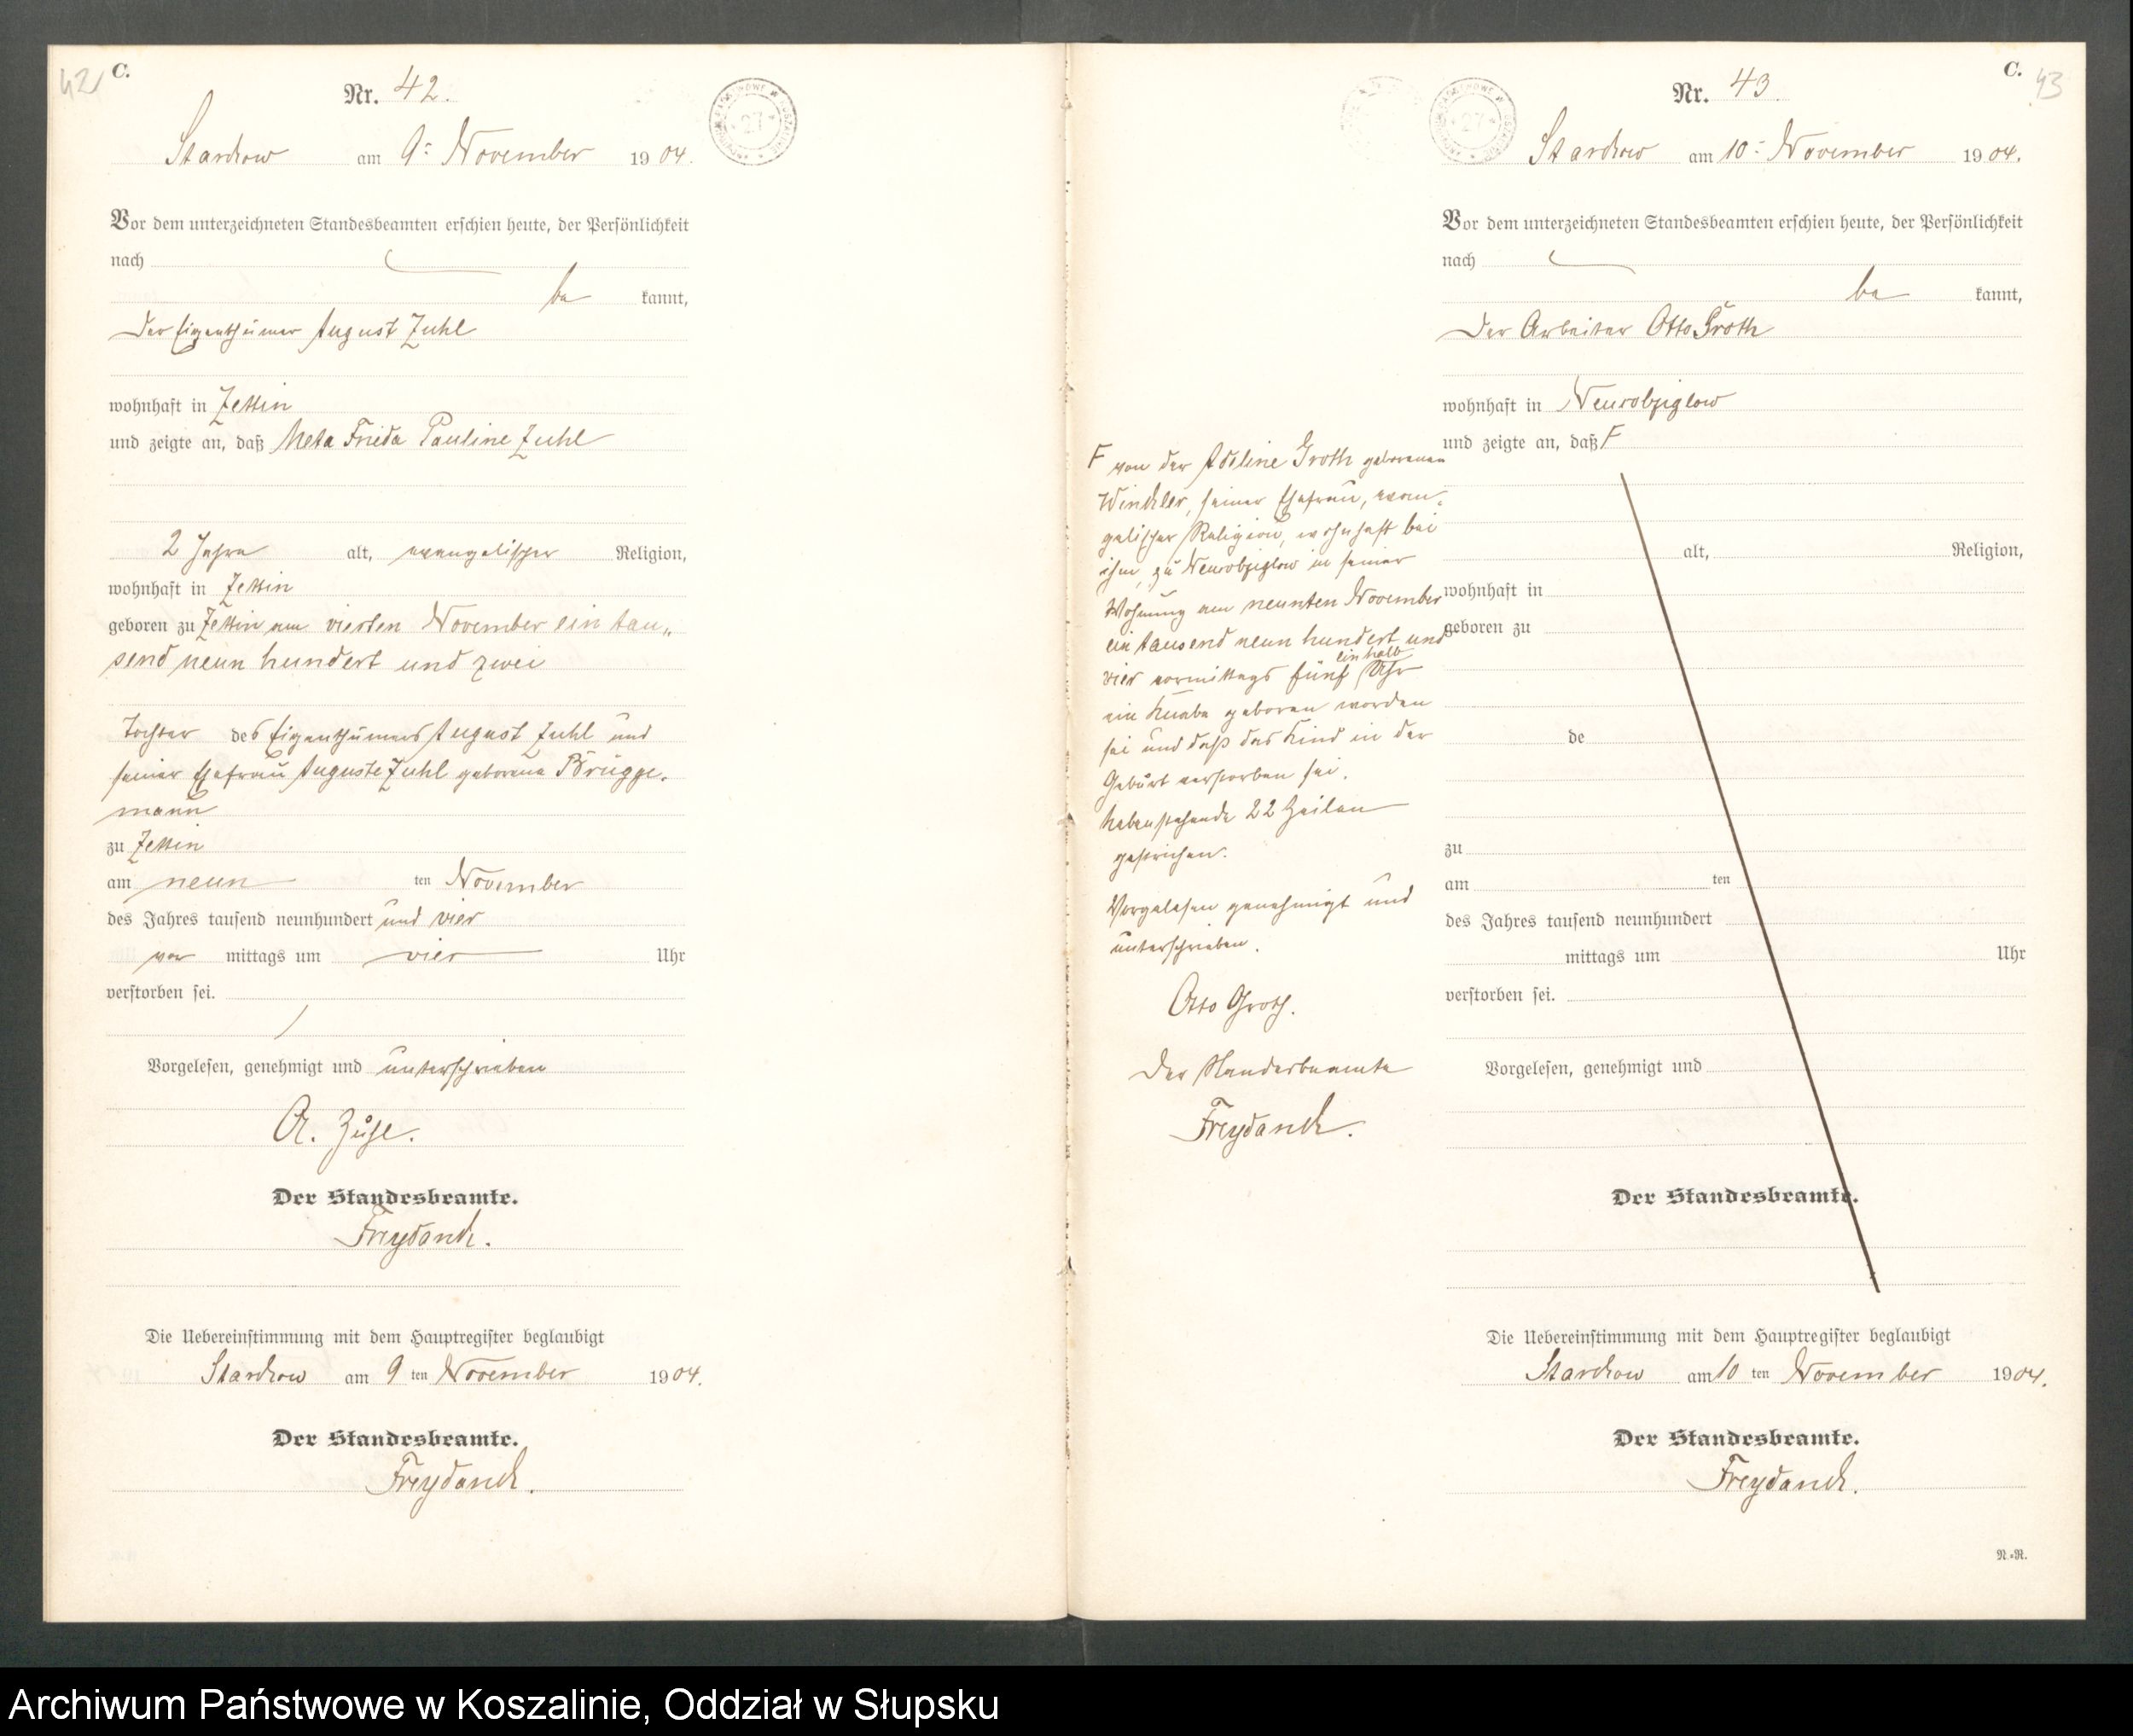 42
C.
Nr. 42.
Starckow am 9ᵗ November 1904.
Vor dem unterzeichneten Standesbeamten erschien heute, der Persönlichkeit
nach
be kannt,
der Eigenthümer August Zuhl
wohnhaft in Zettin
und zeigte an, daß Meta Frieda Pauline Zuhl
2 Jahre alt, evangelischer Religion,
wohnhaft in Zettin
geboren zu Zettin am vierten November ein tau„
send neun hundert und zwei
Tochter des Eigenthümers August Zuhl und
seiner Ehefrau Auguste Zuhl geborene Brügge-
mann
zu Zettin
am neun ten November
des Jahres tausend neunhundert und vier
vor mittags um vier Uhr
verstorben sei.
Vorgelesen, genehmigt und unterschrieben
A. Zuhl.
Der Standesbeamte.
Freydanck.
Die Uebereinstimmung mit dem Hauptregister beglaubigt
Starckow am 9 ten November 1904.
Der Standesbeamte.
Freydanck.
27
C.
43
Nr. 43.
Starckow am 10ᵗ November 1904.
Vor dem unterzeichneten Standesbeamten erschien heute, der Persönlichkeit
nach
be kannt,
der Arbeiter Otto Groth
wohnhaft in Neurobziglow
und zeigte an, daß F
F von der Adeline Groth geborenen
Winckler, seiner Ehefrau, evan-
gelischer Religion, wohnhaft bei
ihm, zu Neurobziglow in seiner
Wohnung am neunten November
ein tausend neun hundert und
vier vormittags fünf einhalb Uhr
ein Knabe geboren worden
sei und daß das Kind in der
Geburt verstorben sei.
Nebenstehende 22 Zeilen
gestrichen.
Vorgelesen genehmigt und
unterschrieben.
Otto Groth.
Der Standesbeamte
Freydanck.
alt, Religion,
wohnhaft in
geboren zu
de
zu
am ten
des Jahres tausend neunhundert
mittags um Uhr
verstorben sei.
Vorgelesen, genehmigt und
Der Standesbeamte.
Die Uebereinstimmung mit dem Hauptregister beglaubigt
Starckow am 10 ten November 1904.
Der Standesbeamte.
Freydanck.
N.=R.
27
Archiwum Państwowe w Koszalinie, Oddział w Słupsku